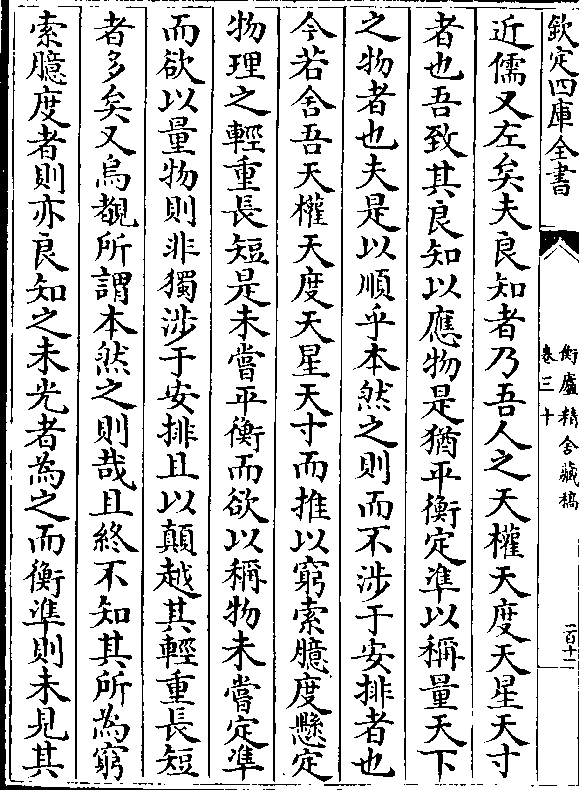 欽定四庫全書
衡廬精舍藏稿
卷三十
一百十一
近儒又左矣夫良知者乃吾人之天權天度天星天寸
者也吾致其良知以應物是猶平衡定準以稱量天下
之物者也夫是以順乎本然之則而不涉于安排者也
今若舍吾天權天度天星天寸而推以窮索臆度懸定
物理之輕重長短是未嘗平衡而欲以稱物未嘗定準
而欲以量物則非獨涉于安排且以顛越其輕重長短
者多矣又烏覩所謂本然之則哉且終不知其所為窮
索臆度者則亦良知之未光者為之而衡準則未見其